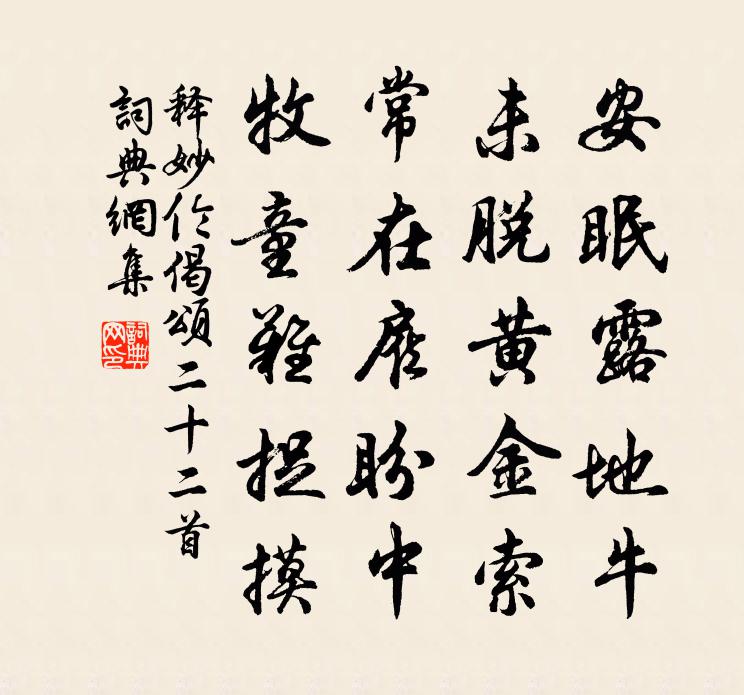 安眠露地牛
未脱黄金索
常在顧盼中
牧童難捉摸
释妙伦偈頌二十二首
詞典網集
詞典网印